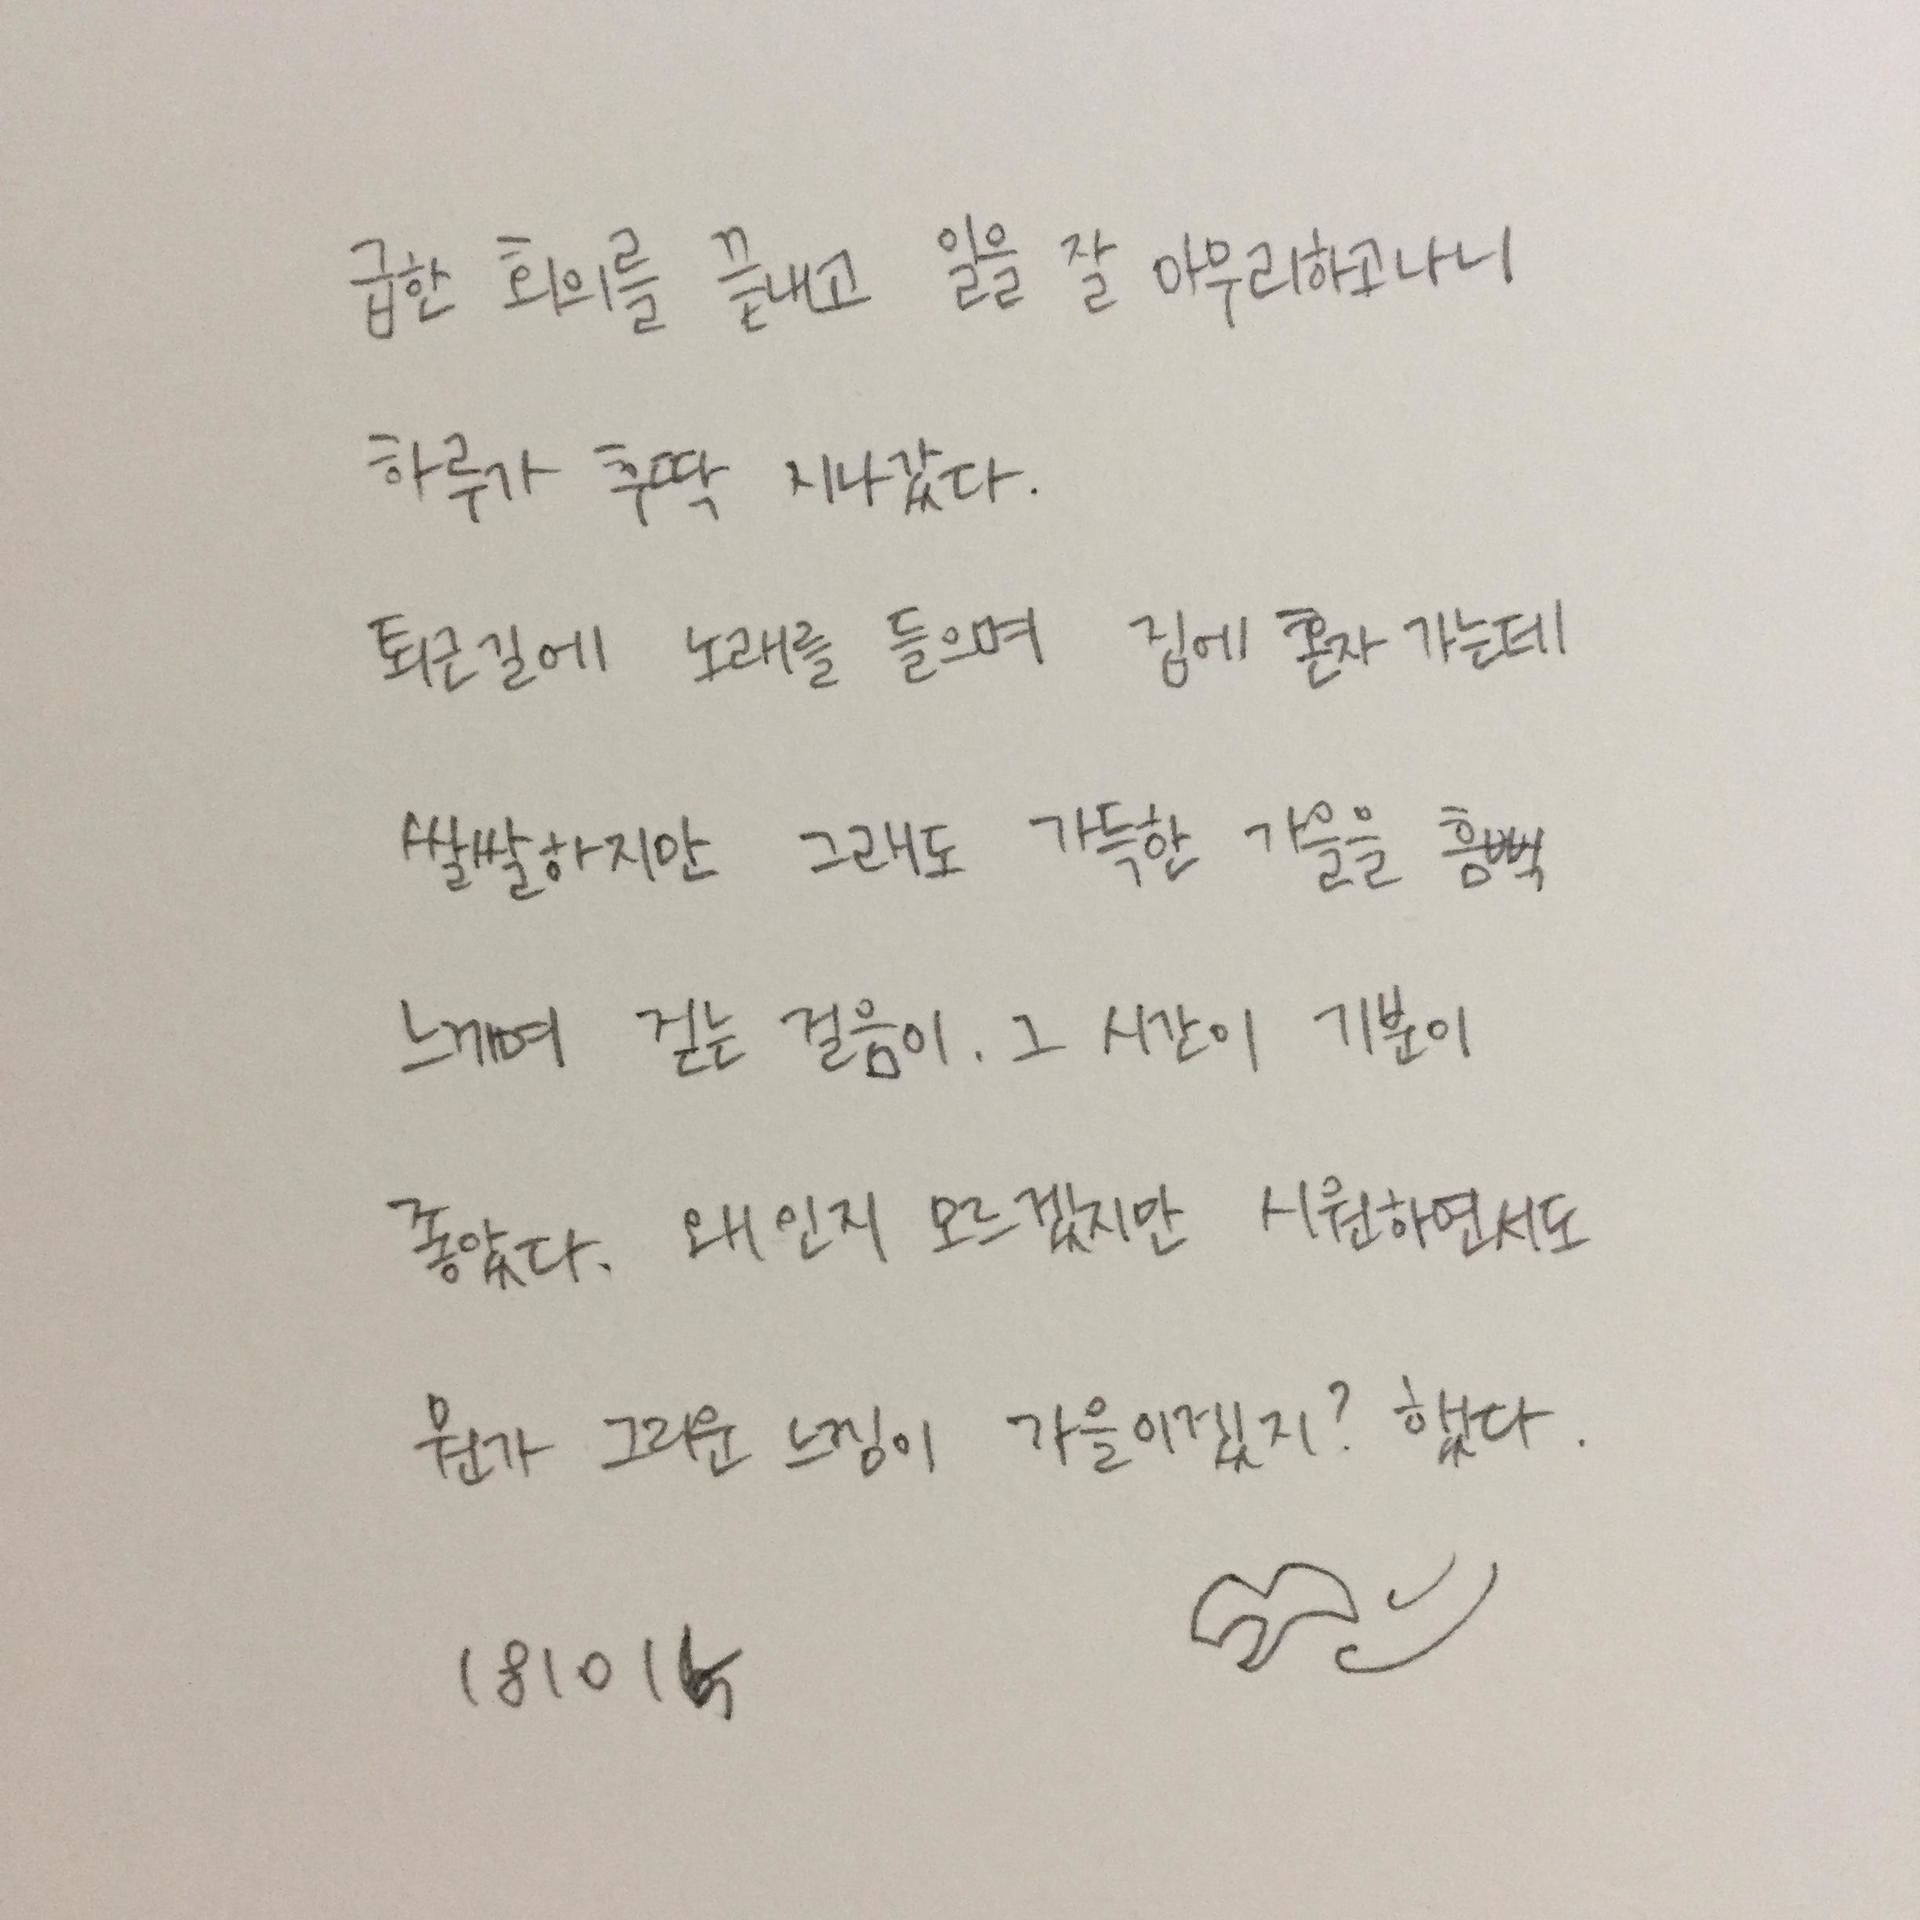 급한 회의를 끝내고 일을 잘 마무리하고나니
하루가 후딱 지나갔다.
퇴근길에 노래를 들으며 집에 혼자 가는데
쌀쌀하지만 그래도 가득한 가을을 흠뻑
느끼며 걷는 걸음이. 그 시간이 기분이
좋았다. 왜인지 모르겠지만 시원하면서도
뭔가 그리운 느낌이 가을이겠지? 했다.